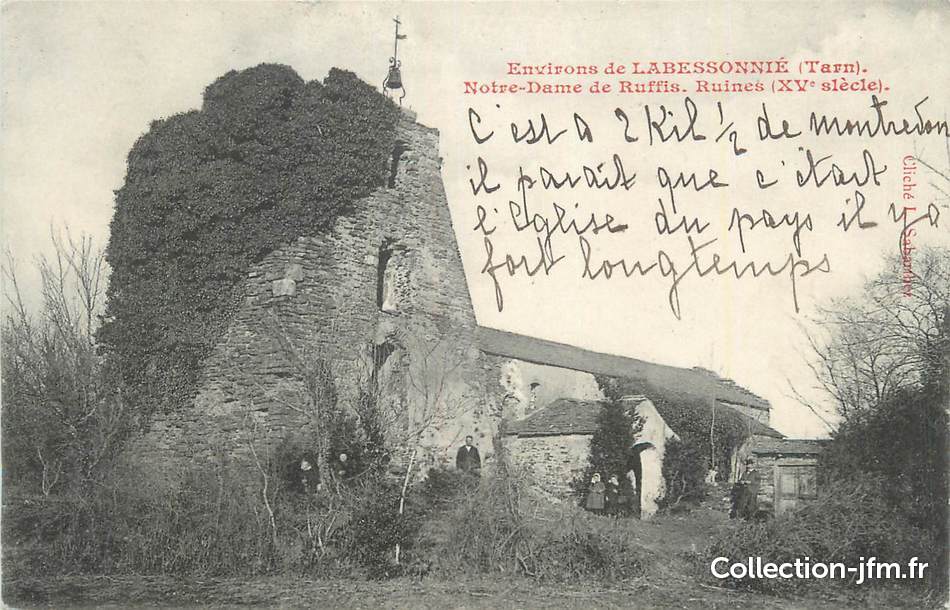 Environs de LABESSONNIÉ (Tarn).
Notre-Dame de Ruffis. Ruines (XVe siècle).
C'est a 2 Kil 1/2 de montredon
il parait que c'était
l'Eglise du pays il y a
fort longtemps
Cliché L. Sabarthez
Collection-jfm.fr